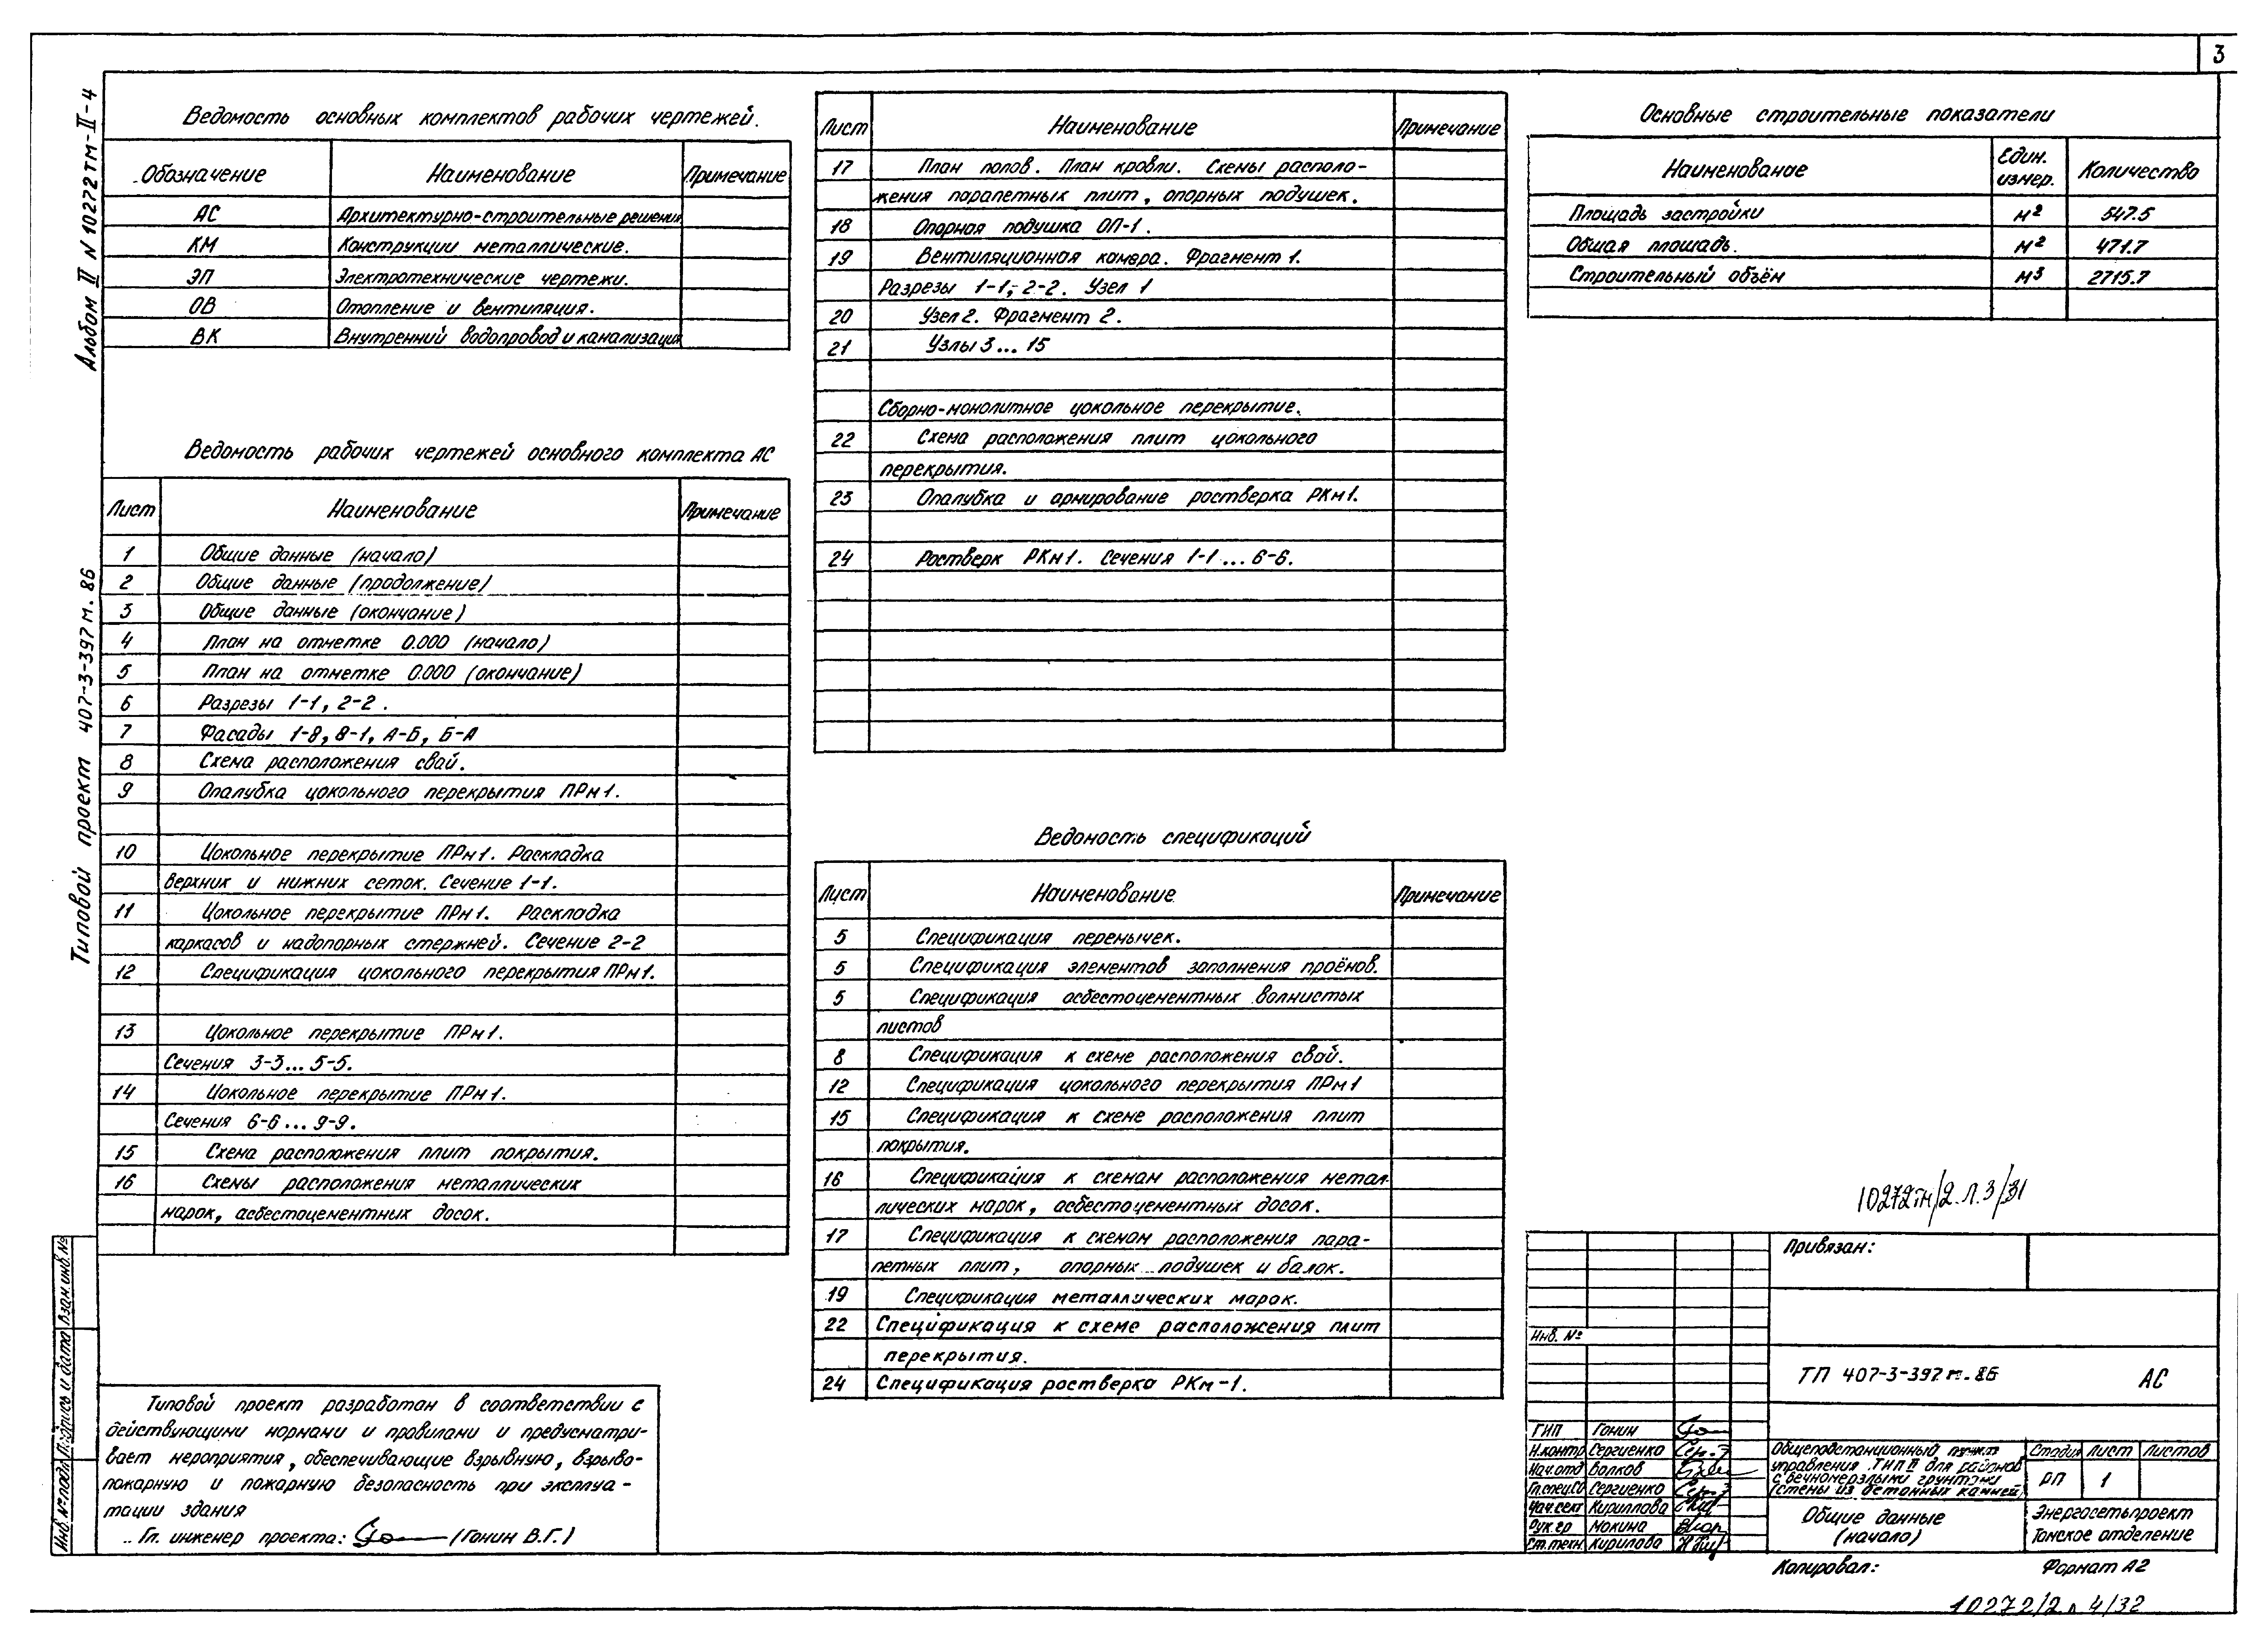 3
Альбом II N 10272тм-II-4
Типовой проект 407-3-397м.86
Ведомость основных комплектов рабочих чертежей.
Обозначение Наименование Примечание
АС Архитектурно-строительные решения
КМ Конструкции металлические.
ЭП Электротехнические чертежи.
ОВ Отопление и вентиляция.
ВК Внутренний водопровод и канализация
Ведомость рабочих чертежей основного комплекта АС
Лист Наименование Примечание
1 Общие данные (начало)
2 Общие данные (продолжение)
3 Общие данные (окончание)
4 План на отметке 0.000 (начало)
5 План на отметке 0.000 (окончание)
6 Разрезы 1-1, 2-2.
7 Фасады 1-8, 8-1, А-Б, Б-А
8 Схема расположения свай.
9 Опалубка цокольного перекрытия ПРм1.
10 Цокольное перекрытие ПРм1. Раскладка
верхних и нижних сеток. Сечение 1-1.
11 Цокольное перекрытие ПРм1. Раскладка
каркасов и надопорных стержней. Сечение 2-2
12 Спецификация цокольного перекрытия ПРм1.
13 Цокольное перекрытие ПРм1.
Сечения 3-3...5-5.
14 Цокольное перекрытие ПРм1.
Сечения 6-6...9-9.
15 Схема расположения плит покрытия.
16 Схемы расположения металлических
марок, асбестоцементных досок.
Типовой проект разработан в соответствии с
действующими нормами и правилами и предусматри-
вает мероприятия, обеспечивающие взрывную, взрыво-
пожарную и пожарную безопасность при эксплуа-
тации здания
Гл. инженер проекта: (Гонин В.Г.)
Инв. № подл. Подпись и дата Взам. инв. №
Лист Наименование Примечание
17 План полов. План кровли. Схемы располо-
жения парапетных плит, опорных подушек.
18 Опорная подушка ОП-1.
19 Вентиляционная камера. Фрагмент 1.
Разрезы 1-1; 2-2. Узел 1
20 Узел 2. Фрагмент 2.
21 Узлы 3...15
Сборно-монолитное цокольное перекрытие.
22 Схема расположения плит цокольного
перекрытия.
23 Опалубка и армирование ростверка РКм1.
24 Ростверк РКм1. Сечения 1-1...6-6.
Ведомость спецификаций
Лист Наименование Примечание
5 Спецификация перемычек.
5 Спецификация элементов заполнения проёмов.
5 Спецификация асбестоцементных волнистых
листов
8 Спецификация к схеме расположения свай.
12 Спецификация цокольного перекрытия ПРм1
15 Спецификация к схеме расположения плит
покрытия.
16 Спецификация к схемам расположения метал-
лических марок, асбестоцементных досок.
17 Спецификация к схемам расположения пара-
петных плит, опорных подушек и балок.
19 Спецификация металлических марок.
22 Спецификация к схеме расположения плит
перекрытия.
24 Спецификация ростверка РКм-1.
Основные строительные показатели
Наименование Един. измер. Количество
Площадь застройки м² 547.5
Общая площадь. м² 471.7
Строительный объём м³ 2715.7
10272тм/2 л.3/31
Привязан:
Инв. №
ТП 407-3-397м.86 АС
ГИП Гонин
Н.контр Сергиенко
Нач.отд Волков
Гл.спец.СО Сергиенко
Нач.сект Кириллова
Рук.гр Мокина
Ст.техн Кирилова
Общеподстанционный пункт
управления тип II для районов
с вечномерзлыми грунтами
(стены из бетонных камней)
Стадия Лист Листов
РП 1
Общие данные
(начало)
Энергосетьпроект
Томское отделение
Копировал: Формат А2
10272/2 л 4/32